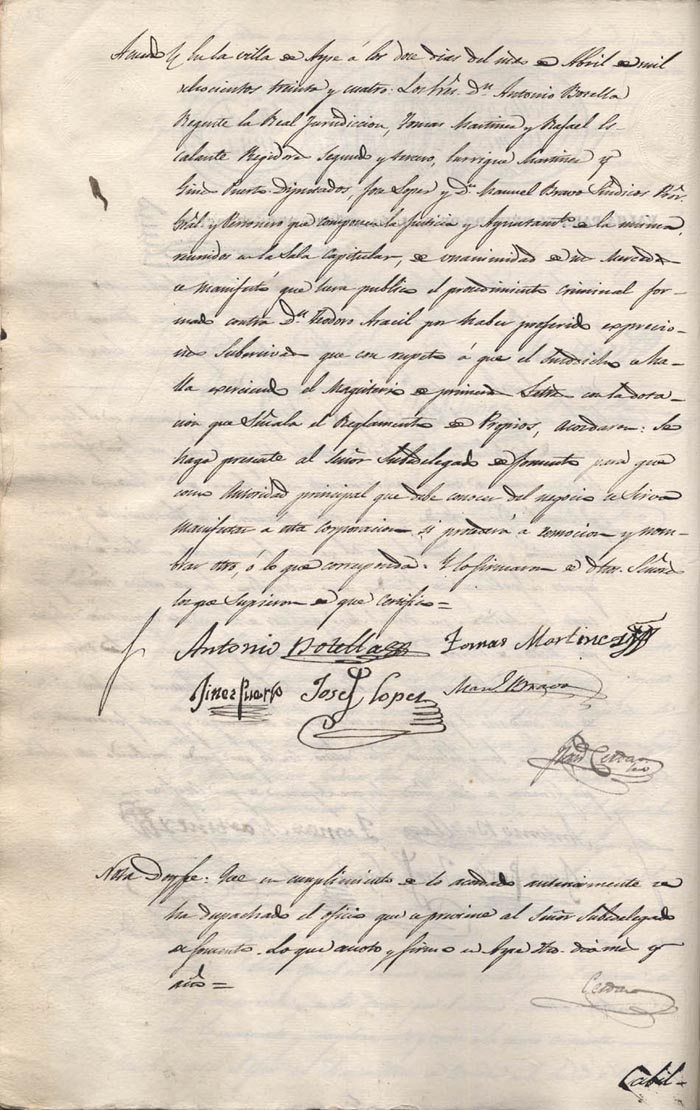 Acuerdo En la villa de Aspe á los doce dias del mes de Abril de mil
ochocientos treinta y cuatro: Los Sres. Dn. Antonio Botella
Regente la Real Jurisdiccion, Tomas Martinez y Rafael Es-
calante Regidores segundo y tercero, Enrrique Martinez y
Gines Puerto Diputados, Jose Lopez y Dn. Manuel Bravo Sindicos Pror.
Gral y Personero que componen la Justicia y Ayuntamto. de la misma,
reunidos en la Sala Capitular, de unanimidad
se manifestó que siendo publico el procedimiento criminal for-
mado contra Dn. Teodoro Aracil por haber proferido exprecio-
nes Subercivas que con respeto á que el susodicho se ha-
lla exerciendo el Magisterio de primeras Letras con la dota-
cion que Señala el Reglamento de Propios, acordaron: Se
haga presente al Señor Subdelegado de fomento para que
como Autoridad principal que debe conocer del negocio se Sirva
manifestar á esta corporacion si procederá á remocion y nom-
brar otro, ó lo que corresponda. Y lo firmaron de dhos. Señores
los que Supieron de que certifico=
Antonio Botella Tomas Martinez
Jines Puerto Josef Lopez Manl. Bravo
Cerdan
Nota Doy fe: Que en cumplimiento de lo acordado anteriormente se
ha despachado el oficio que se previene al Señor Subdelegado
de fomento. Lo que anoto y firmo en Aspe dho. dia mes y
año=
Cerdan
Cabil-